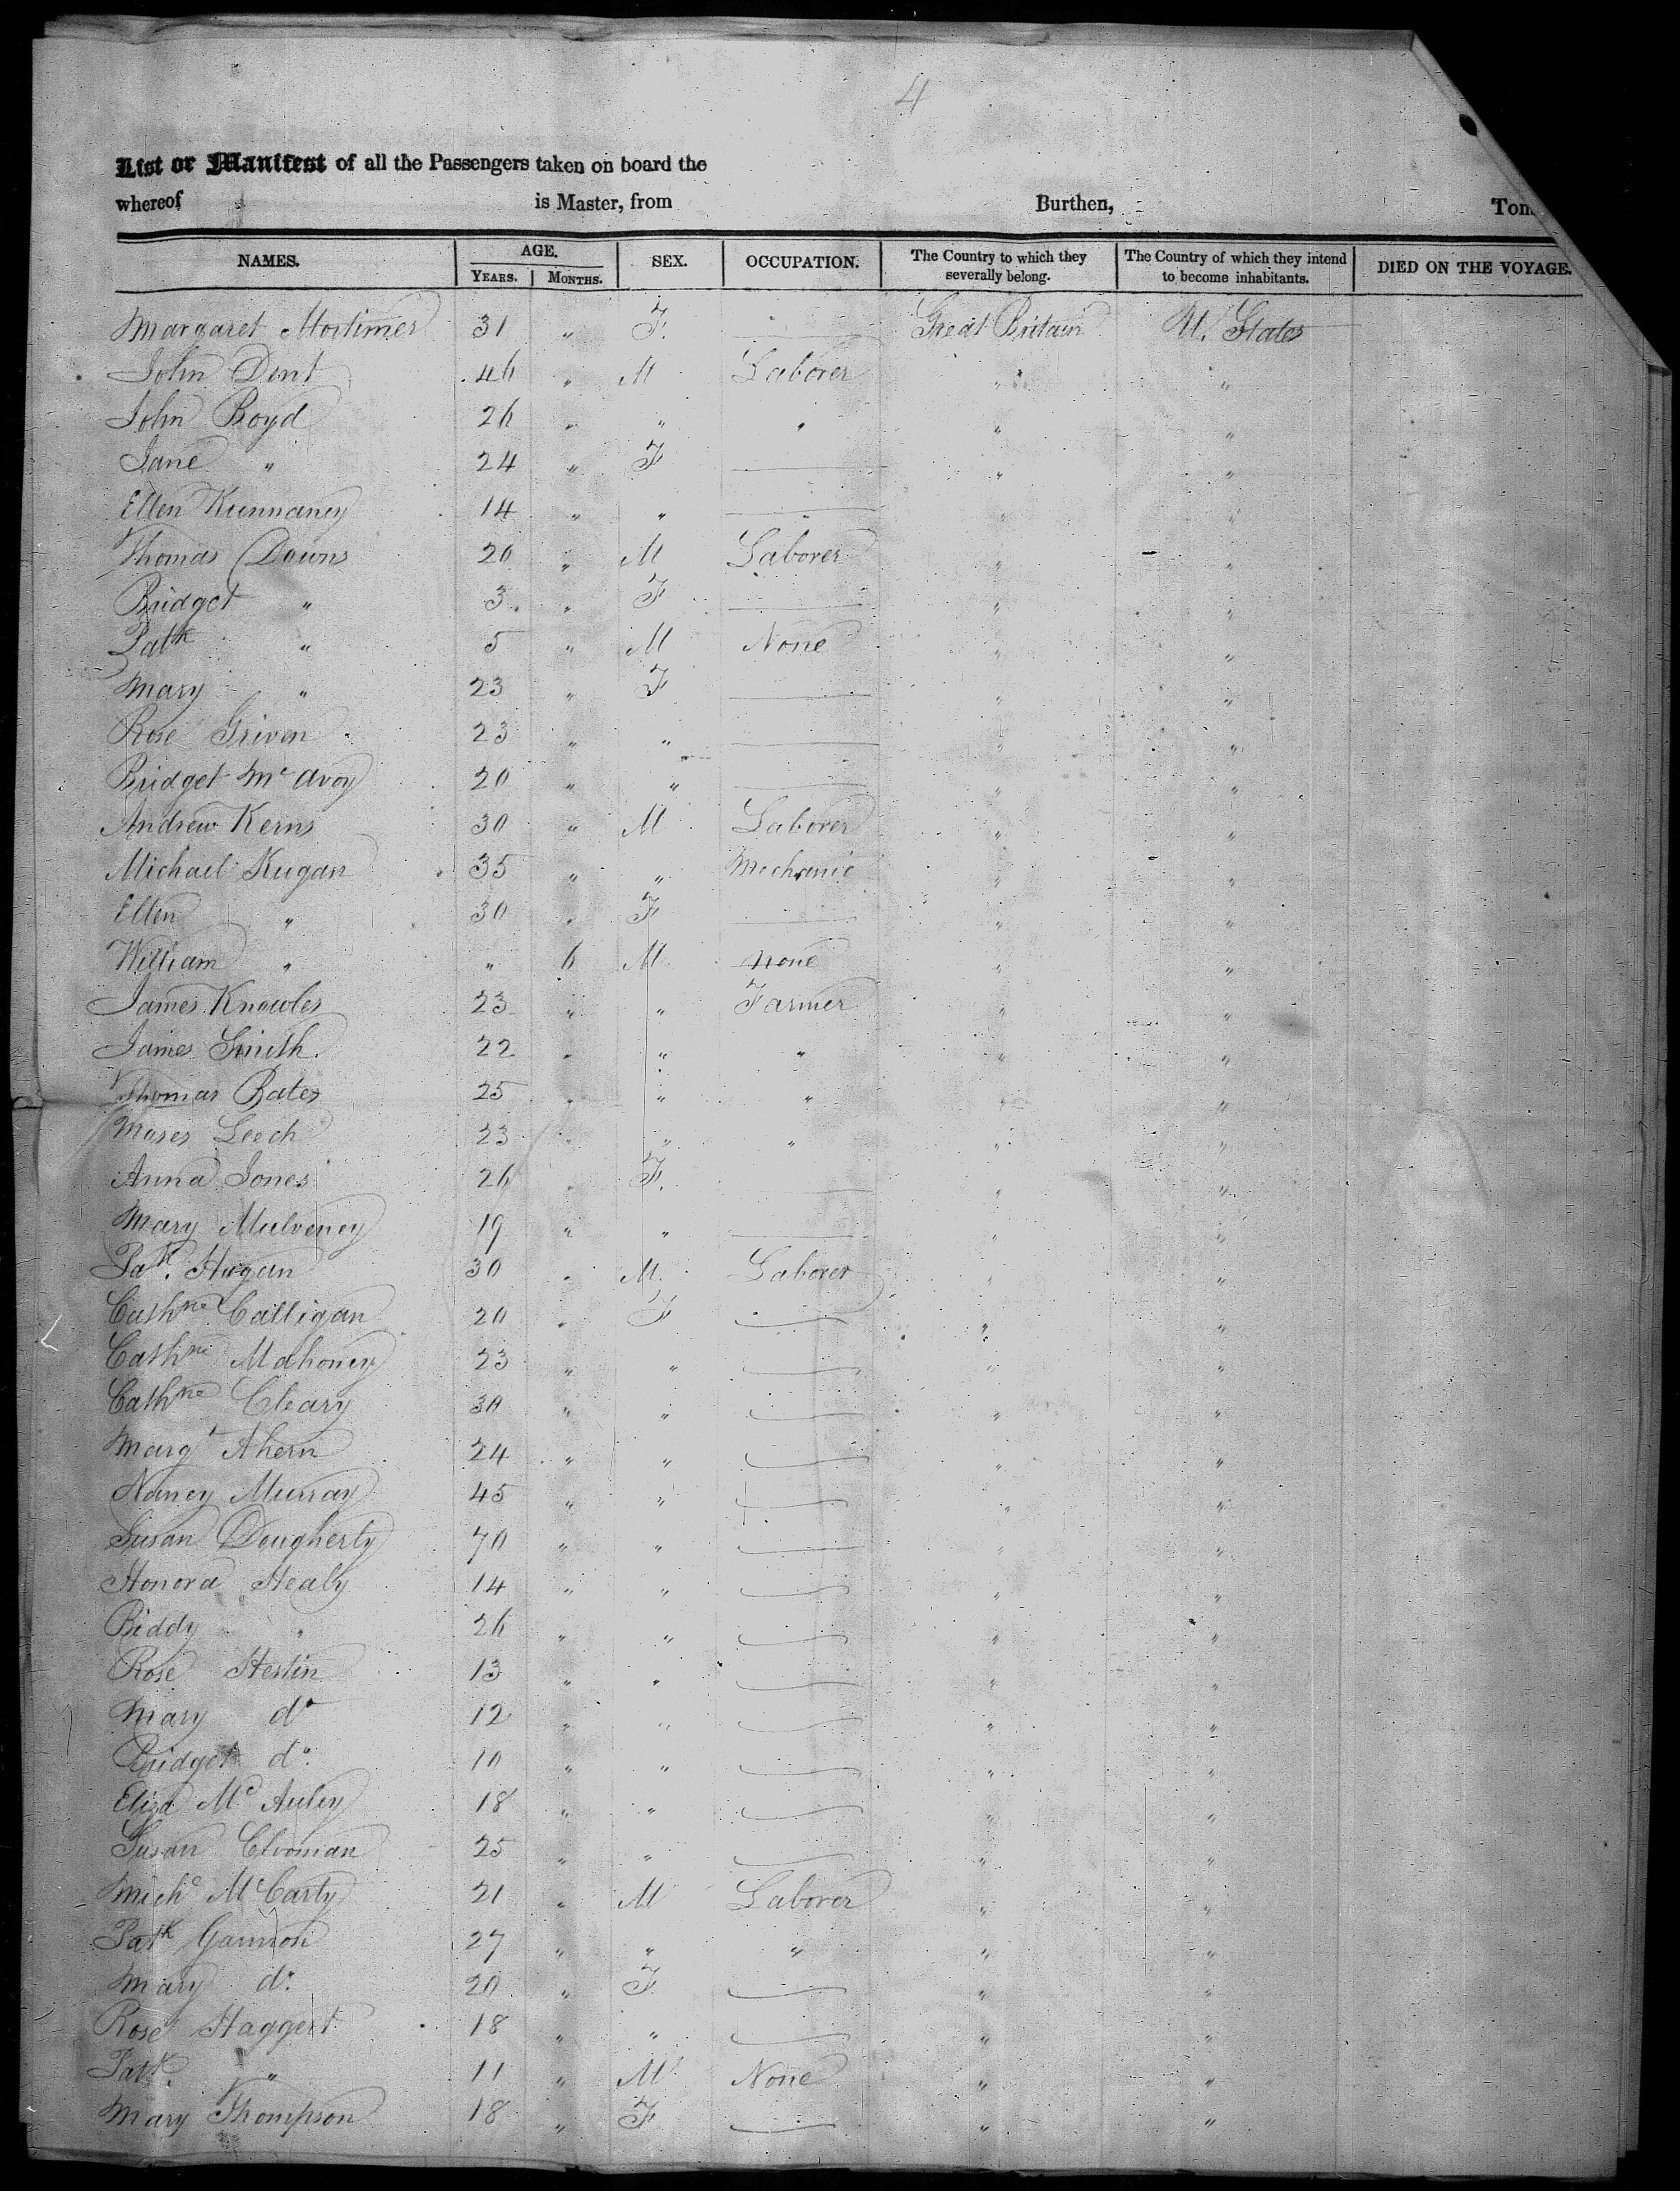 4
List or Manifest of all the Passengers taken on board the
whereof is Master, from Burthen, Tons.
NAMES. AGE. YEARS. MONTHS. SEX. OCCUPATION. The Country to which they severally belong. The Country of which they intend to become inhabitants. DIED ON THE VOYAGE.
Margaret Mortimer 31 " F. — Great Britain U. States
John Dent 46 " M Laborer " "
John Boyd 26 " " " " "
Jane " 24 " F — " "
Ellen Kunnaney 14 " " — " "
Thomas Downs 20 " M Laborer " "
Bridget " 3 " F — " "
Patk " 5 " M None " "
Mary " 23 " F — " "
Rose Griven 23 " " — " "
Bridget McAvoy 20 " " — " "
Andrew Kerns 30 " M Laborer " "
Michael Kugan 35 " " Mechanic " "
Ellen " 30 " F — " "
William " " 6 M None " "
James Knowles 23 " " Farmer " "
James Smith 22 " " " " "
Thomas Bates 25 " " " " "
Moses Leech 23 " " " " "
Anna Jones 26 " F. — " "
Mary Mulveney 19 " " — " "
Pak. Hugan 30 " M. Laborer " "
Cathne Calligan 20 " F — " "
Cathne Mahoney 23 " " — " "
Cathne Cleary 30 " " — " "
Margt Ahern 24 " " — " "
Nancy Murray 45 " " — " "
Susan Dougherty 70 " " — " "
Honora Healy 14 " " — " "
Biddy " 26 " " — " "
Rose Heslin 13 " " — " "
Mary do 12 " " — " "
Bridget do. 10 " " — " "
Eliza McAuley 18 " " — " "
Susan 25 " " — " "
Michl McCarty 21 " M Laborer " "
Patk Gannon 27 " " " " "
Mary do. 20 " F — " "
Rose Haggert 18 " " — " "
Patk. " 11 " M None " "
Mary Thompson 18 " F — " "